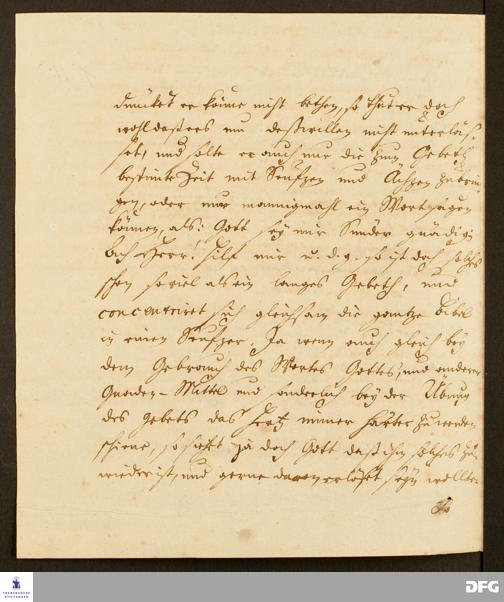 dünckt er könne nicht bethen, so thut er doch
wohl daß ers um deßwillen nicht unterläs-
set, und solte er auch nur die zum Gebeth
bestimte Zeit mit Seufzen und Ächzen zubrin-
gen, oder nur mannigmahl ein Wort sagen
können, als: Gott sey mir Sünder gnädig!
Ach Herr! hilf mir u. d. g. so ist doch solches
schon so viel als ein langes Gebeth, und
concentriret sich gleichsam die gantze Bibel
in einen Seufzer. Ja wenn auch gleich bey
dem Gebrauch des Wortes Gottes, und anderer
Gnaden-Mittel und sonderlich bey der Übung
des Gebets das Hertz immer härter zu werden
schiene, so sieht ja doch Gott daß ihm solches zu-
wieder ist, und gerne davon erlöset seyn wollte.
FRANCKESCHE
STIFTUNGEN
DFG